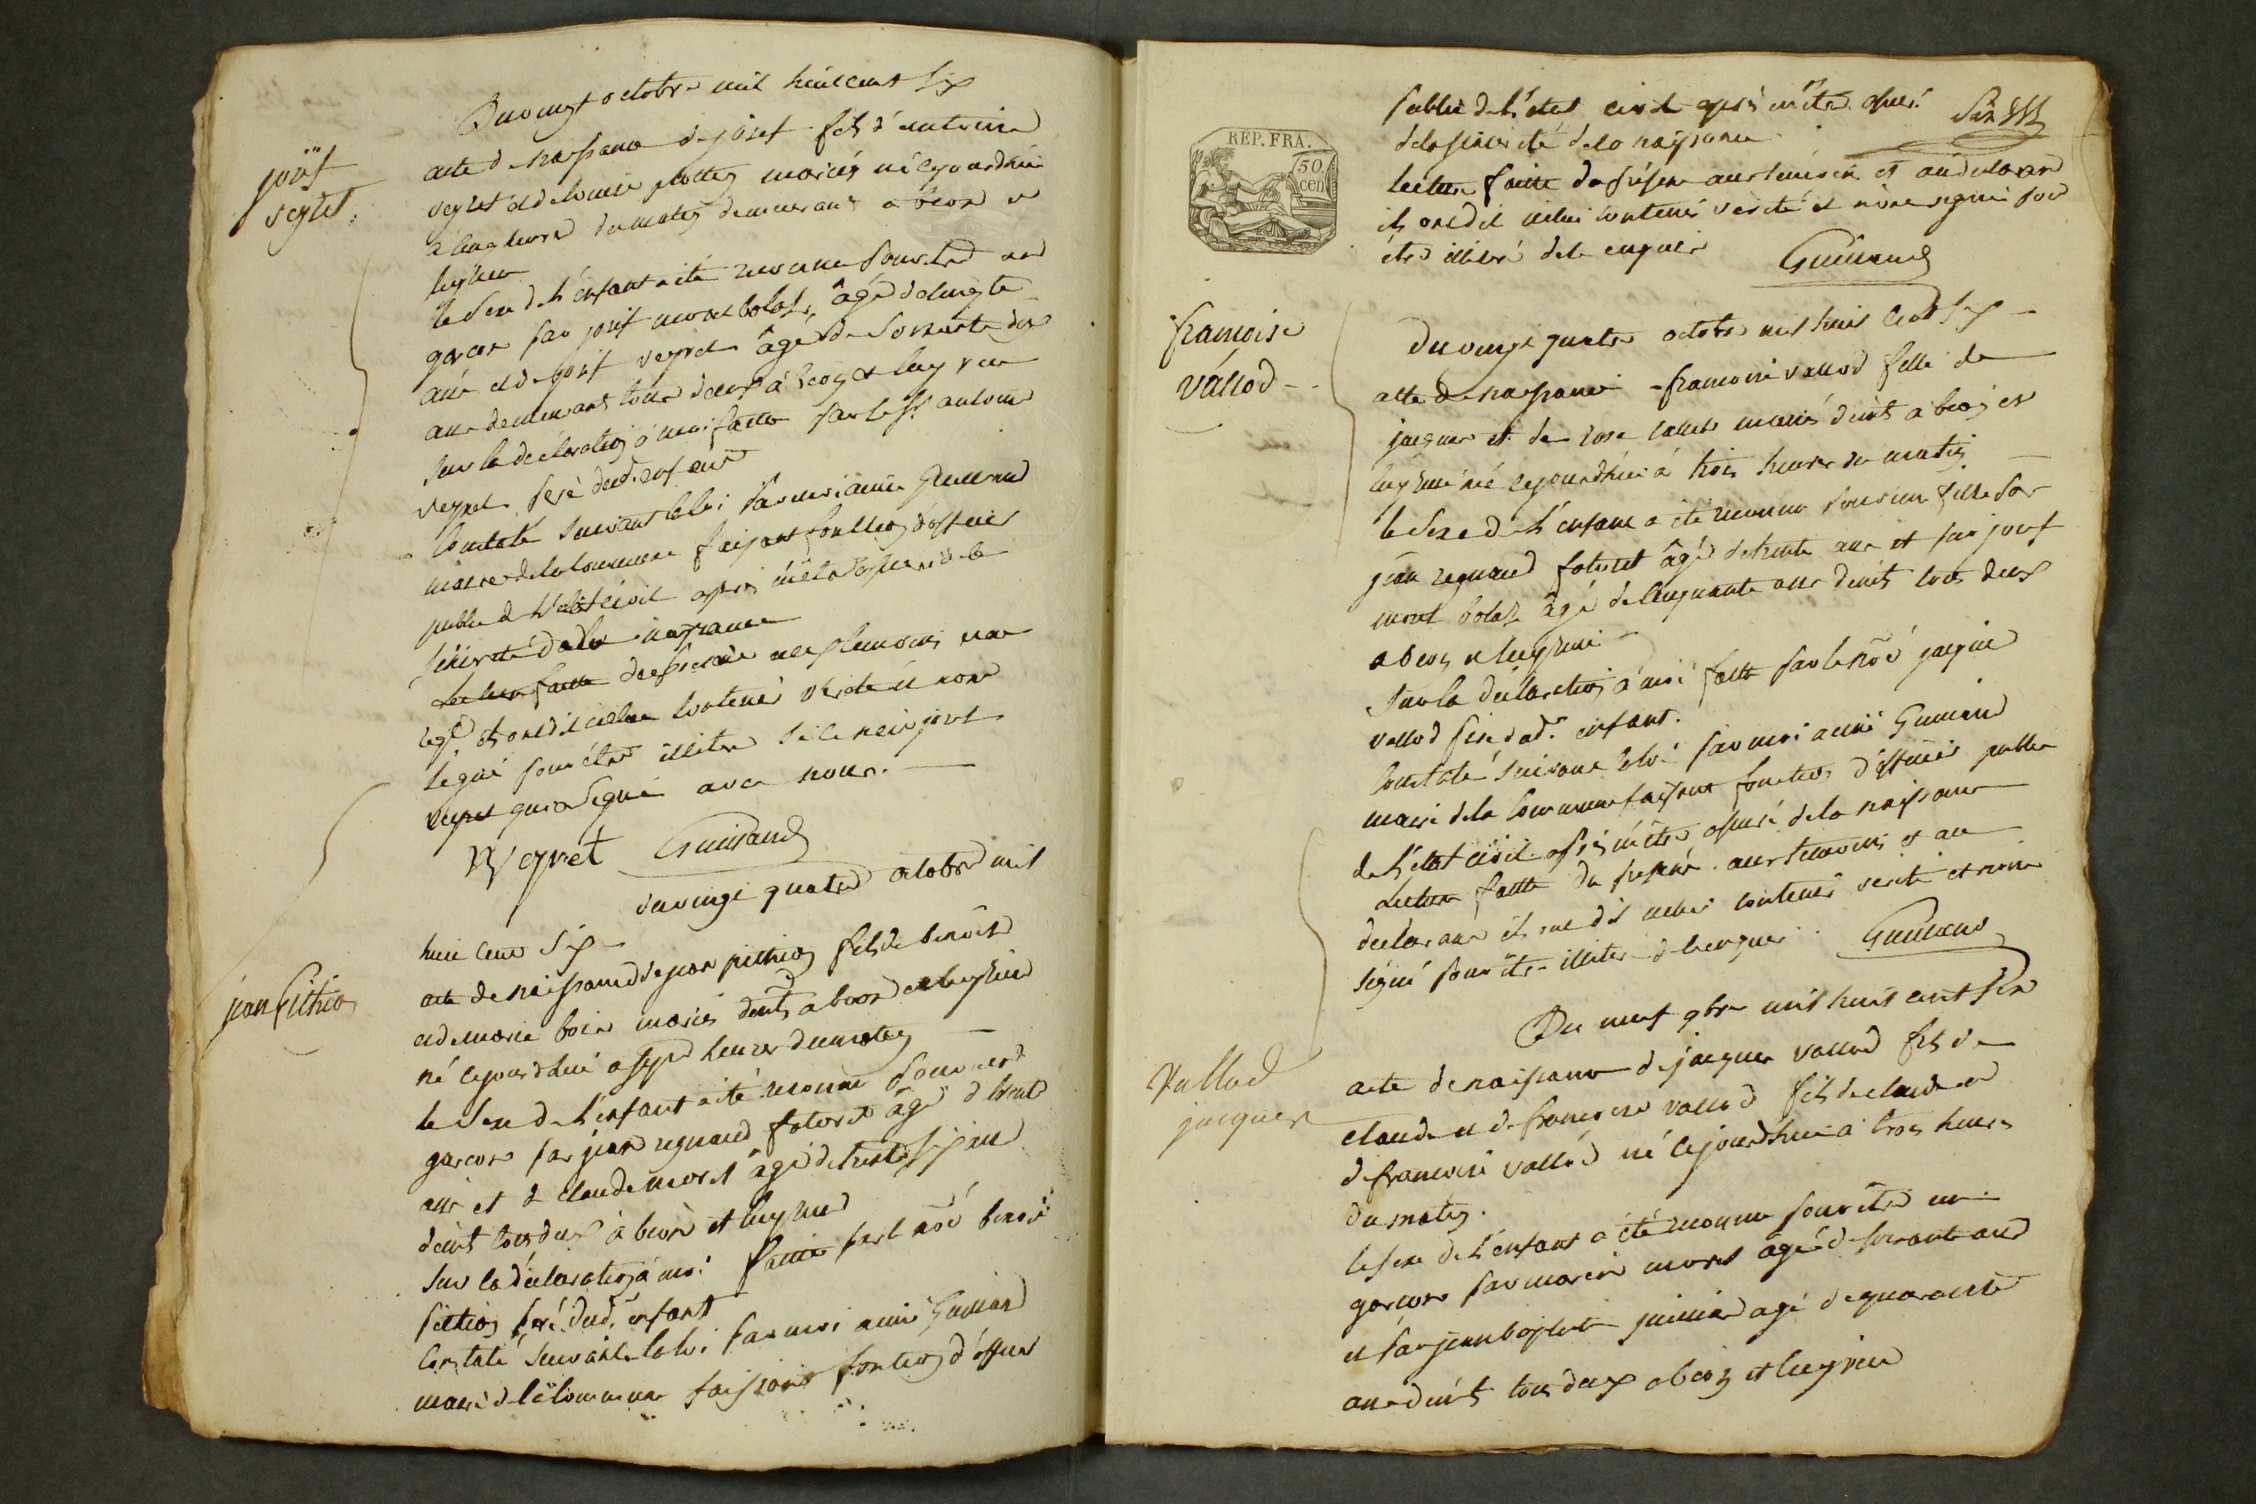 Du vingt octobre mil huit cent six
josef
veyret.
acte de naissance de josef fils d'antoine
veyret et de louise mariés né cejourdhui
à heure du matin demeurant a beon et
luyrieu
le sexe de l'enfant a été reconnu pour être un
garcon par josef morel bolaz, âgé de cinquante
ans et de josef veyret âgé de soixante dix
ans demeurant tous deux à beon et luyrieu
sur la déclaration à moi faitte par le st antoine
veyret père dud. enfant
Constaté suivant la loi par moi aimé Guiraud
maire de la commune faisant fonction d'officier
public de l'état civil après m'être assuré de la
sincerité de la naissance
Lecture faitte du present aux temoins
ils ont dit icelui contenir verité et non
signé pour être illiteré si ce n'est josef
veyret qui a signé avec nous.
Veyret Guiraud
du vingt quatre octobre mil
huit cent six
jean pithion
acte de naissance de jean pithion fils de benoit
et de marie mariés dents a beon et luyrieu
né cejourdhui a sept heures du matin
le sexe de l'enfant a été reconnu pour un
garcon par jean reynaud foteret âgé de trente
ans et de claude morel âgé de trente six ans
dents tous deux à beon et luyrieu
sur la déclaration à moi faitte par le nôé benoit
pithion père dud. enfant
Constaté suivant la loi par moi aimé Guiraud
maire de la commune faisant fonction d'officier
public de l'état civil après m'être assuré
de la sincerité de la naissance
REP. FRA.
50
cen
lecture faitte du présent aux temoins et au declarant
ils ont dit icelui contenir verité et non signé pour
être illiteré de ce enquis Guiraud
francoise
vallod
Du vingt quatre octobre mil huit cent six
acte de naissance francoise vallod fille de
jacques et de rose mariés dents a beon et
luyrieu né cejourdhui à trois heures du matin
le sexe de l'enfant a été reconnu pour une fille par
jean reynaud foteret âgé de trente ans et par josef
morel bolaz âgé de cinquante ans dents tous deux
a beon et luyrieu
sur la déclaration à moi faitte par le nôé jacques
vallod père dud. enfant.
Constaté suivant la loi par moi aimé Guiraud
maire de la commune faisant fonction d'officier public
de l'état civil après m'être assuré de la naissance
Lecture faitte du présent aux temoins et au
declarant ils ont dit icelui contenir verité et non
signé pour être illiteré de ce enquis Guiraud
Du neuf 9bre mil huit cent six
Vallod
jacques
acte de naissance de jacques vallod fils de
claude et de francoise vallod fils de claude et
de francoise vallod né cejourdhui à trois heures
du matin.
le sexe de l'enfant a été reconnu pour être un
garcon par morel âgé de soixante ans
et par jean baptiste âgé de quarante
ans dents tous deux a beon et luyrieu